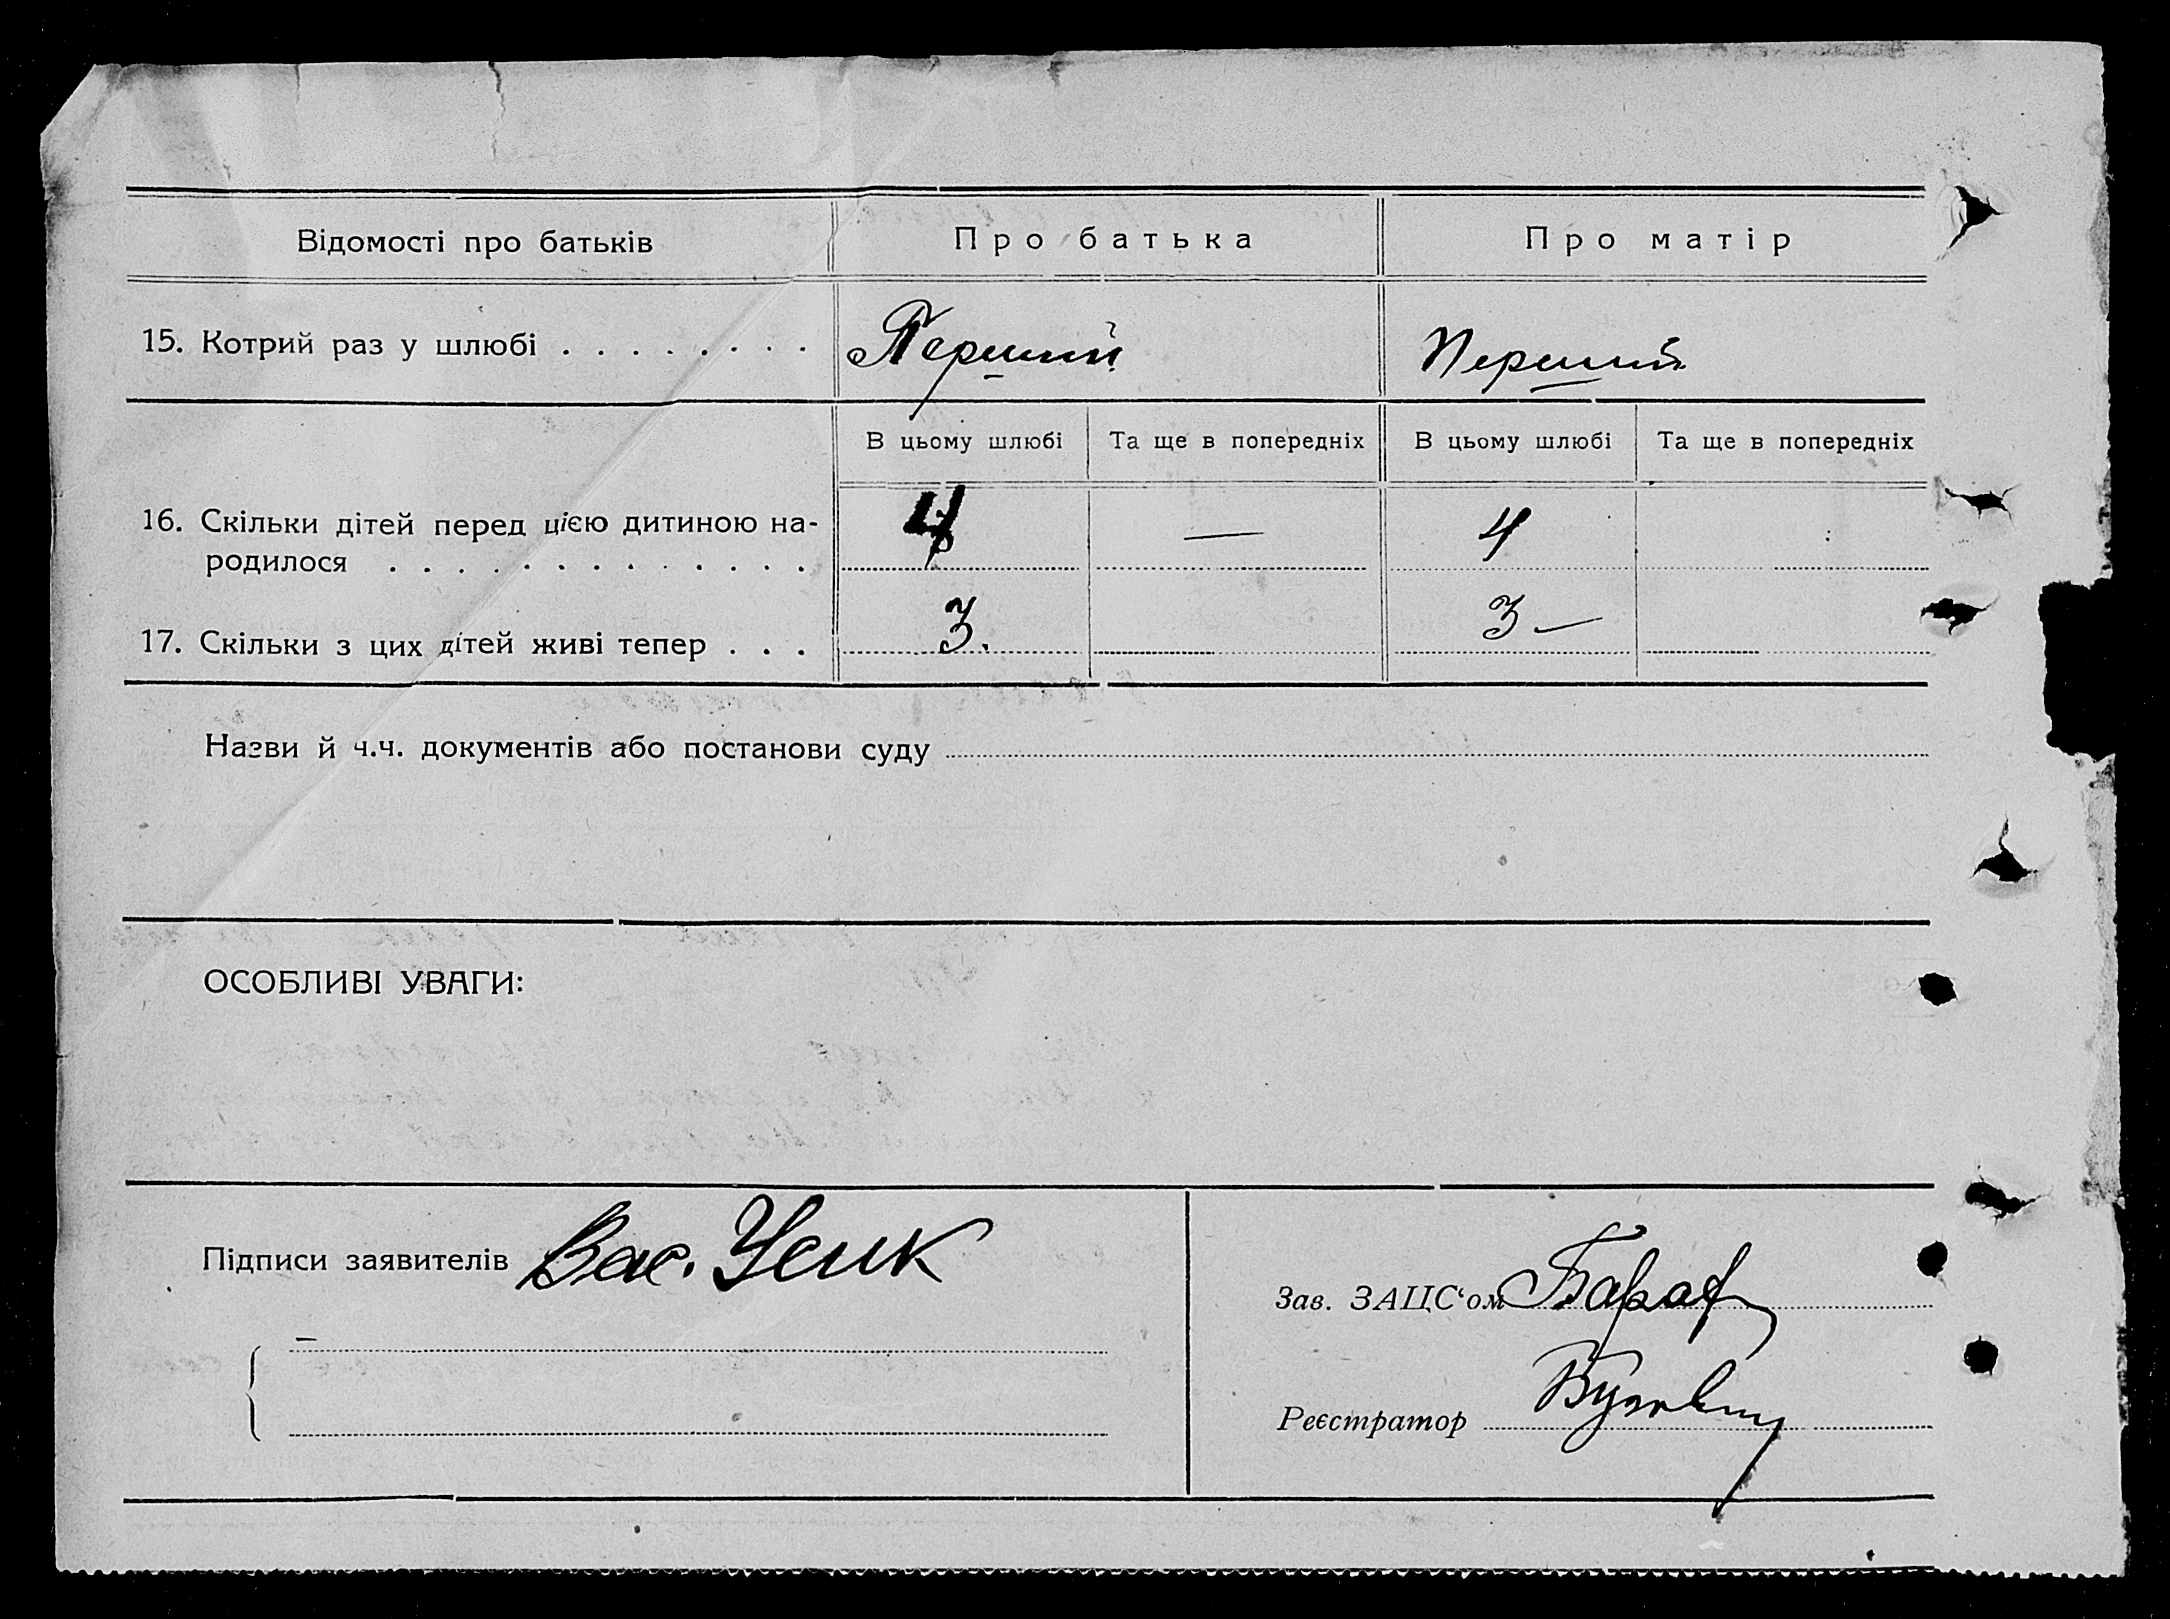 Відомості про батьків Про батька Про матір
15. Котрий раз у шлюбі . . . . . . . . Перший Перший
В цьому шлюбі Та ще в попередніх В цьому шлюбі Та ще в попередніх
16. Скільки дітей перед цією дитиною на- 4 — 4
родилося . . . . . . . . . . . . .
17. Скільки з цих дітей живі тепер . . . 3. 3 —
Назви й ч.ч. документів або постанови суду
ОСОБЛИВІ УВАГИ:
Підписи заявителів Вас. Усик
Зав. ЗАЦС‘ом
Реєстратор